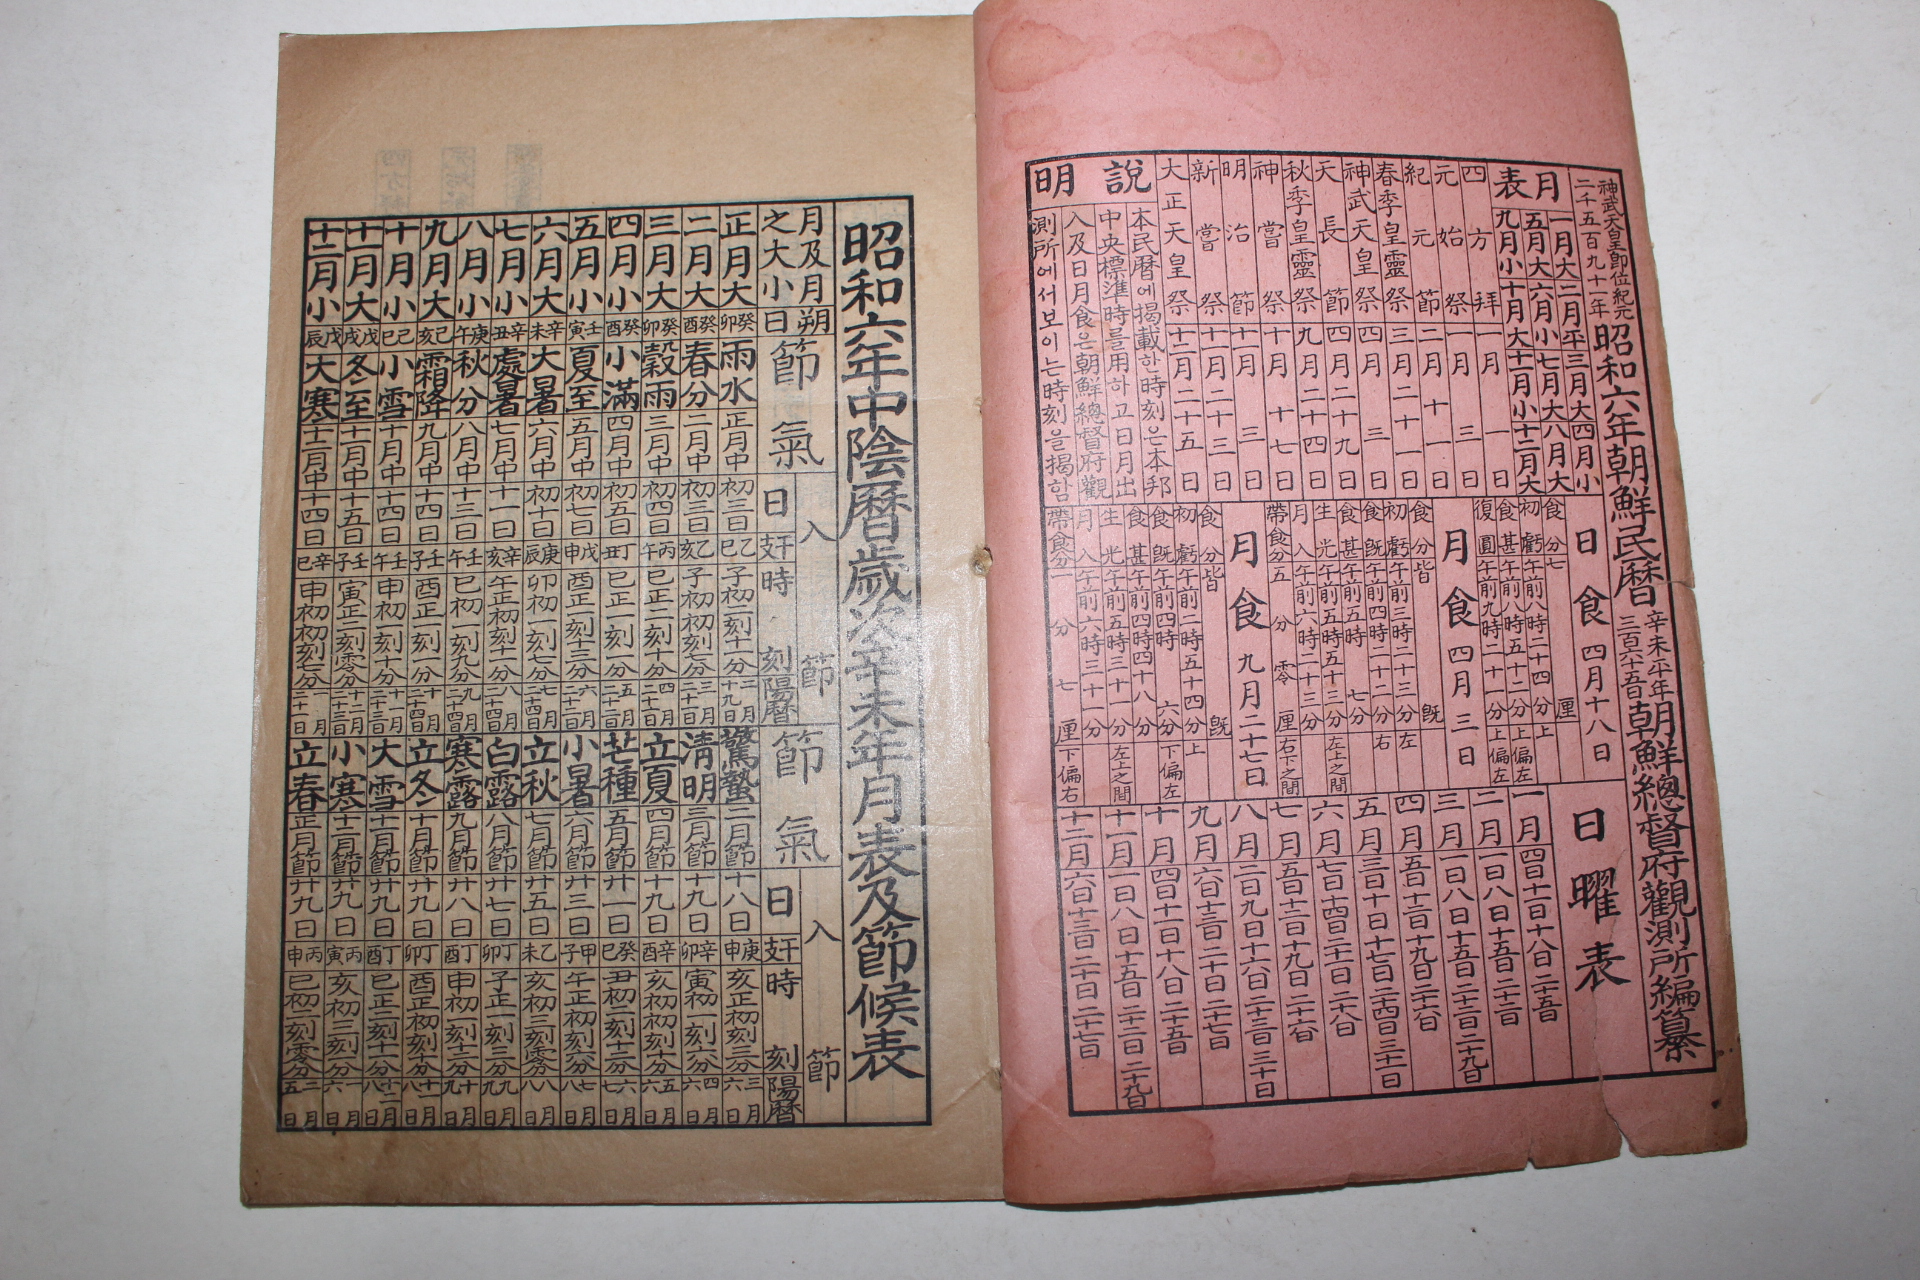 神武天皇即位紀元
二千五百九十一年
昭和六年朝鮮民暦
辛未平年
三百六十五日
朝鮮總督府觀測所編纂
月表
一月大二月平三月大四月小
五月大六月小七月大八月大
九月小十月大十一月小十二月大
四方拜 一月一日
元始祭 一月三日
紀元節 二月十一日
春季皇靈祭 三月二十一日
神武天皇祭 四月三日
天長節 四月二十九日
秋季皇靈祭 九月二十四日
神嘗祭 十月十七日
明治節 十一月三日
新嘗祭 十一月二十三日
大正天皇祭 十二月二十五日
說明
本民暦에揭載한時刻은本邦
中央標準時를用하고日月出
入及日月食은朝鮮總督府觀
測所에서보이는時刻을揭함
日食 四月十八日
食分七厘
初虧午前八時二十四分上
食甚午前八時五十二分上偏左
復圓午前九時二十一分上偏左
月食 四月三日
食分皆既
初虧午前三時二十三分左
食既午前四時二十二分右
食甚午前五時七分
生光午前五時五十三分左上之間
月入午前六時二十三分
帶食分五分零厘右下之間
月食 九月二十七日
食分皆既
初虧午前二時五十四分上
食既午前四時六分下偏左
食甚午前四時四十八分
生光午前五時三十一分左上之間
月入午前六時三十一分
帶食分一分七厘下偏右
日曜表
一月 四日十一日十八日二十五日
二月 一日八日十五日二十二日
三月 一日八日十五日二十二日二十九日
四月 五日十二日十九日二十六日
五月 三日十日十七日二十四日三十一日
六月 七日十四日二十一日二十八日
七月 五日十二日十九日二十六日
八月 二日九日十六日二十三日三十日
九月 六日十三日二十日二十七日
十月 四日十一日十八日二十五日
十一月 一日八日十五日二十二日二十九日
十二月 六日十三日二十日二十七日
昭和六年中陰暦歲次辛未年月表及節候表
月及月之大小 朔日 節氣 入節 日 支干 時刻 陽暦 節氣 入節 日 支干 時刻 陽暦
正月大 癸卯 雨水 正月中 初三日 乙巳 子初二刻十一分 二月十九日 驚蟄 二月節 十八日 庚申 亥正初刻三分 三月六日
二月大 癸酉 春分 二月中 初三日 乙亥 子初初刻六分 三月二十一日 清明 三月節 十九日 辛卯 寅初一刻六分 四月六日
三月大 癸卯 穀雨 三月中 初四日 丙午 巳正二刻十分 四月二十一日 立夏 四月節 十九日 辛酉 亥初初刻十分 五月六日
四月小 癸酉 小滿 四月中 初五日 丁丑 巳正一刻一分 五月二十二日 芒種 五月節 廿一日 癸巳 丑初二刻十二分 六月七日
五月小 壬寅 夏至 五月中 初七日 戊申 酉正一刻十三分 六月二十二日 小暑 六月節 廿三日 甲子 午正初刻六分 七月八日
六月大 辛未 大暑 六月中 初十日 庚辰 卯初一刻七分 七月二十四日 立秋 七月節 廿五日 乙未 亥初二刻零分 八月八日
七月小 辛丑 處暑 七月中 十一日 辛亥 午正初刻十一分 八月二十四日 白露 八月節 廿七日 丁卯 子正一刻三分 九月九日
八月小 庚午 秋分 八月中 十三日 壬午 巳初一刻九分 九月二十四日 寒露 九月節 廿八日 丁酉 申初一刻十二分 十月九日
九月大 己亥 霜降 九月中 十四日 壬子 酉正一刻一分 十月二十四日 立冬 十月節 廿九日 丁卯 酉正初刻十分 十一月八日
十月小 己巳 小雪 十月中 十四日 壬午 申初一刻十分 十一月二十三日 大雪 十一月節 廿九日 丁酉 巳正二刻十一分 十二月八日
十一月大 戊戌 冬至 十一月中 十五日 壬子 寅正二刻零分 十二月二十三日 小寒 十二月節 廿九日 丙寅 亥初三刻一分 一月六日
十二月小 戊辰 大寒 十二月中 十四日 辛巳 申初初刻七分 一月二十一日 立春 正月節 廿九日 丙申 巳初二刻零分 二月五日